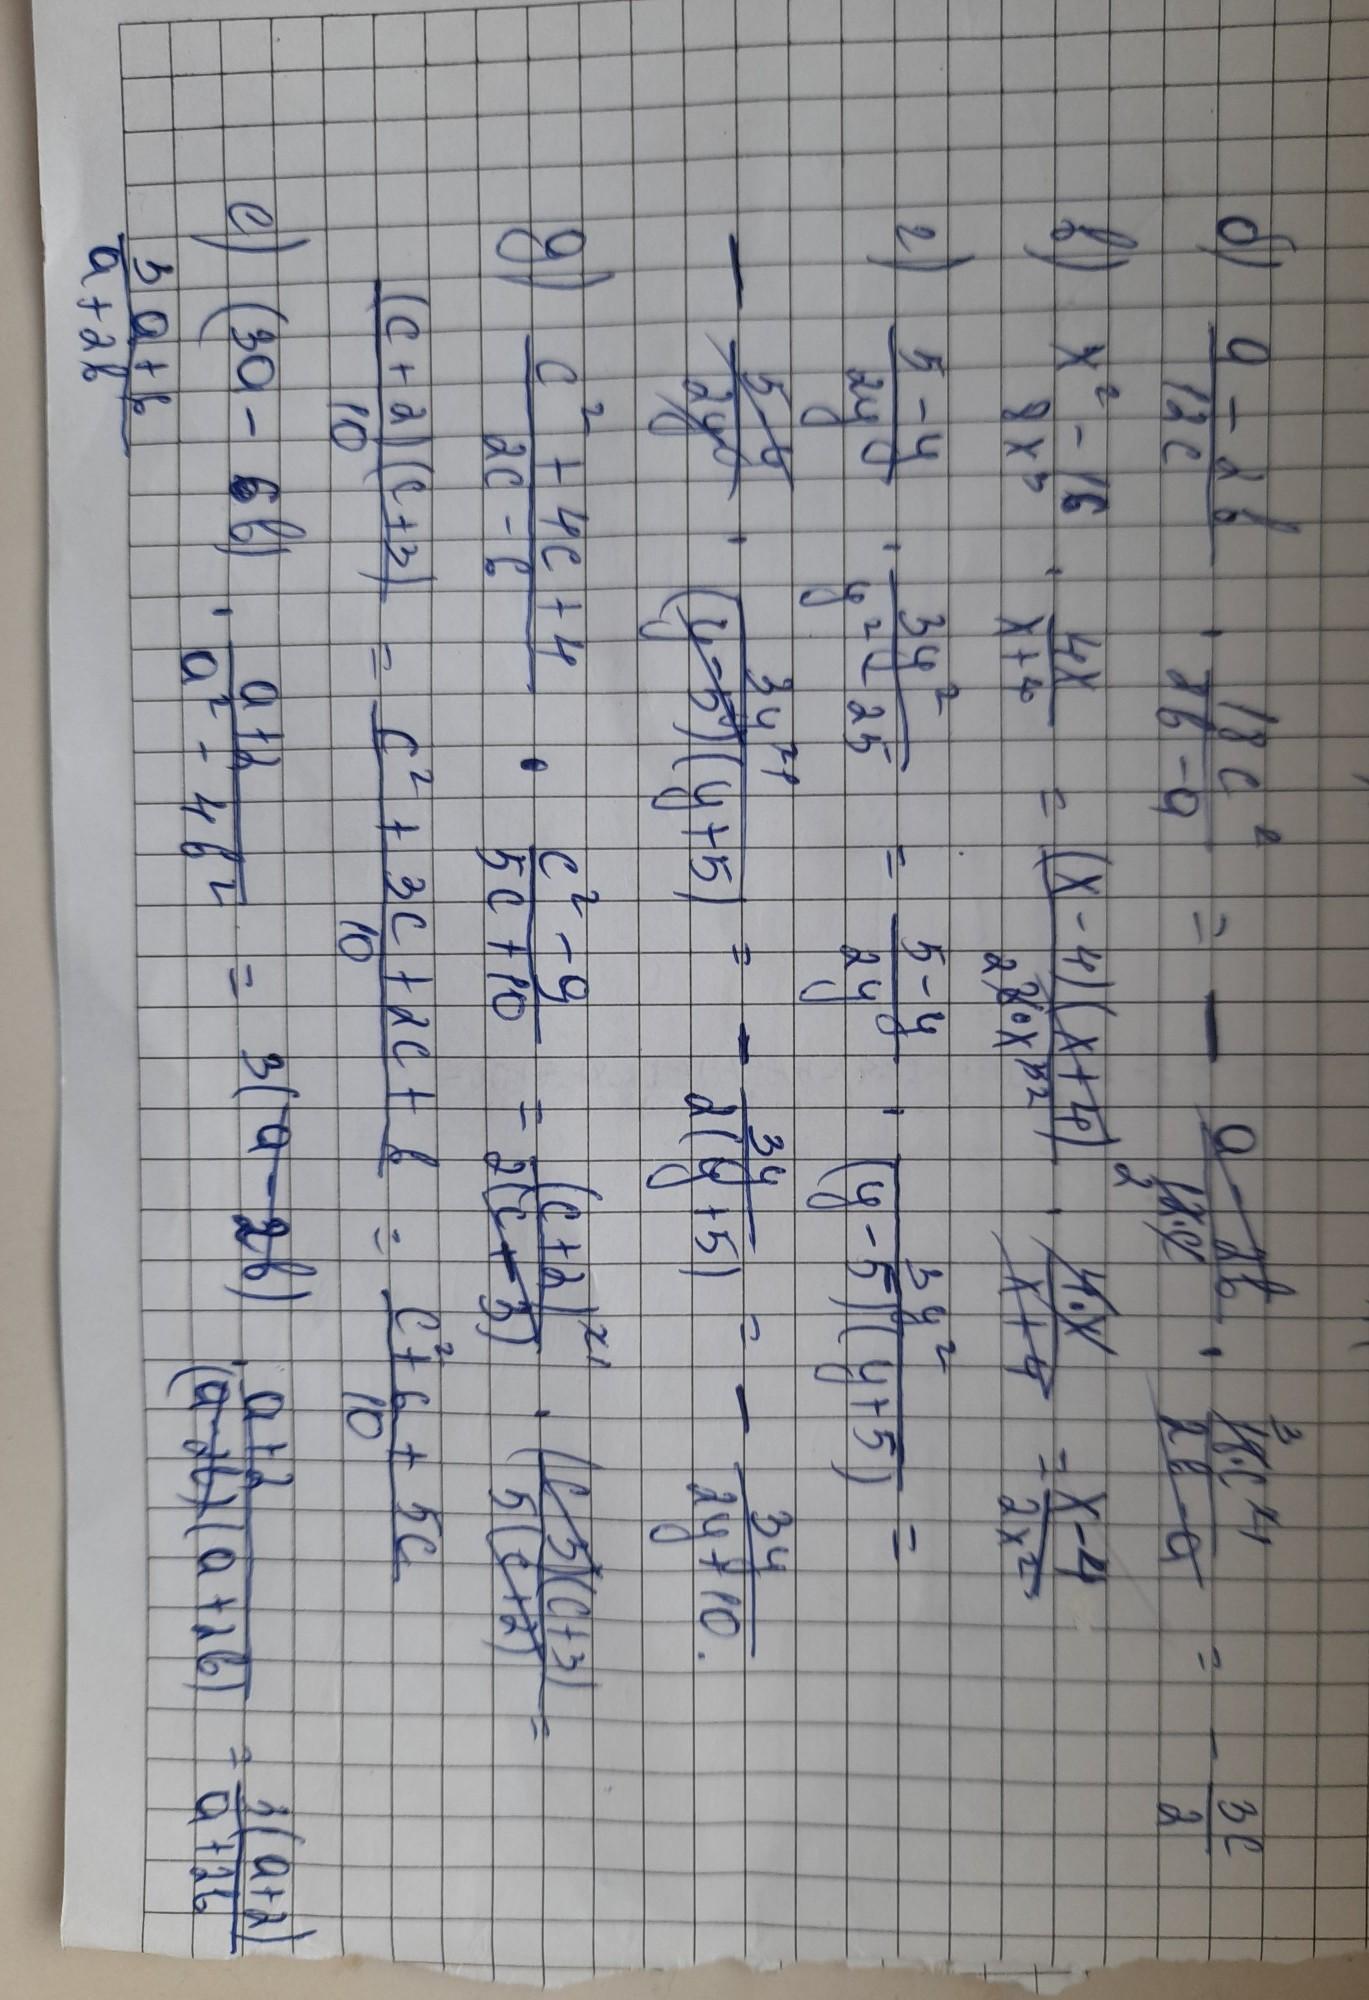 б) a - 2b / 12c · 18c² / 2b - a = - a - 2b / 12·c · 18·c² / 2b - a = - 3c / 2
в) x² - 16 / 8x³ · 4x / x+4 = (x - 4)(x + 4) / 2·x² · 4·x / x+4 = x - 4 / 2x²
г) 5 - y / 2y · 3y² / y² - 25 = 5 - y / 2y · 3y² / (y - 5)(y + 5) =
- 5 - y / 2y · 3y² / (y - 5)(y + 5) = - 3y / 2(y + 5) = - 3y / 2y + 10.
д) c² + 4c + 4 / 2c - 6 · c² - 9 / 5c + 10 = (c + 2)² / 2(c - 3) · (c - 3)(c + 3) / 5(c + 2) =
(c + 2)(c + 3) / 10 = c² + 3c + 2c + 6 / 10 = c² + 6 + 5c / 10
е) (3a - 6b) · a + 2 / a² - 4b² = 3(a - 2b) · a + 2 / (a - 2b)(a + 2b) = 3(a + 2) / a + 2b
3a + 6 / a + 2b